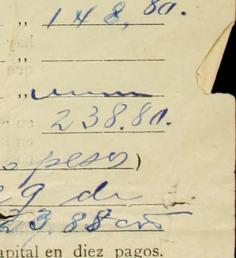 " 148,80.
"
"
238.80.
pesos)
9 de
23.88
apital en diez pagos.